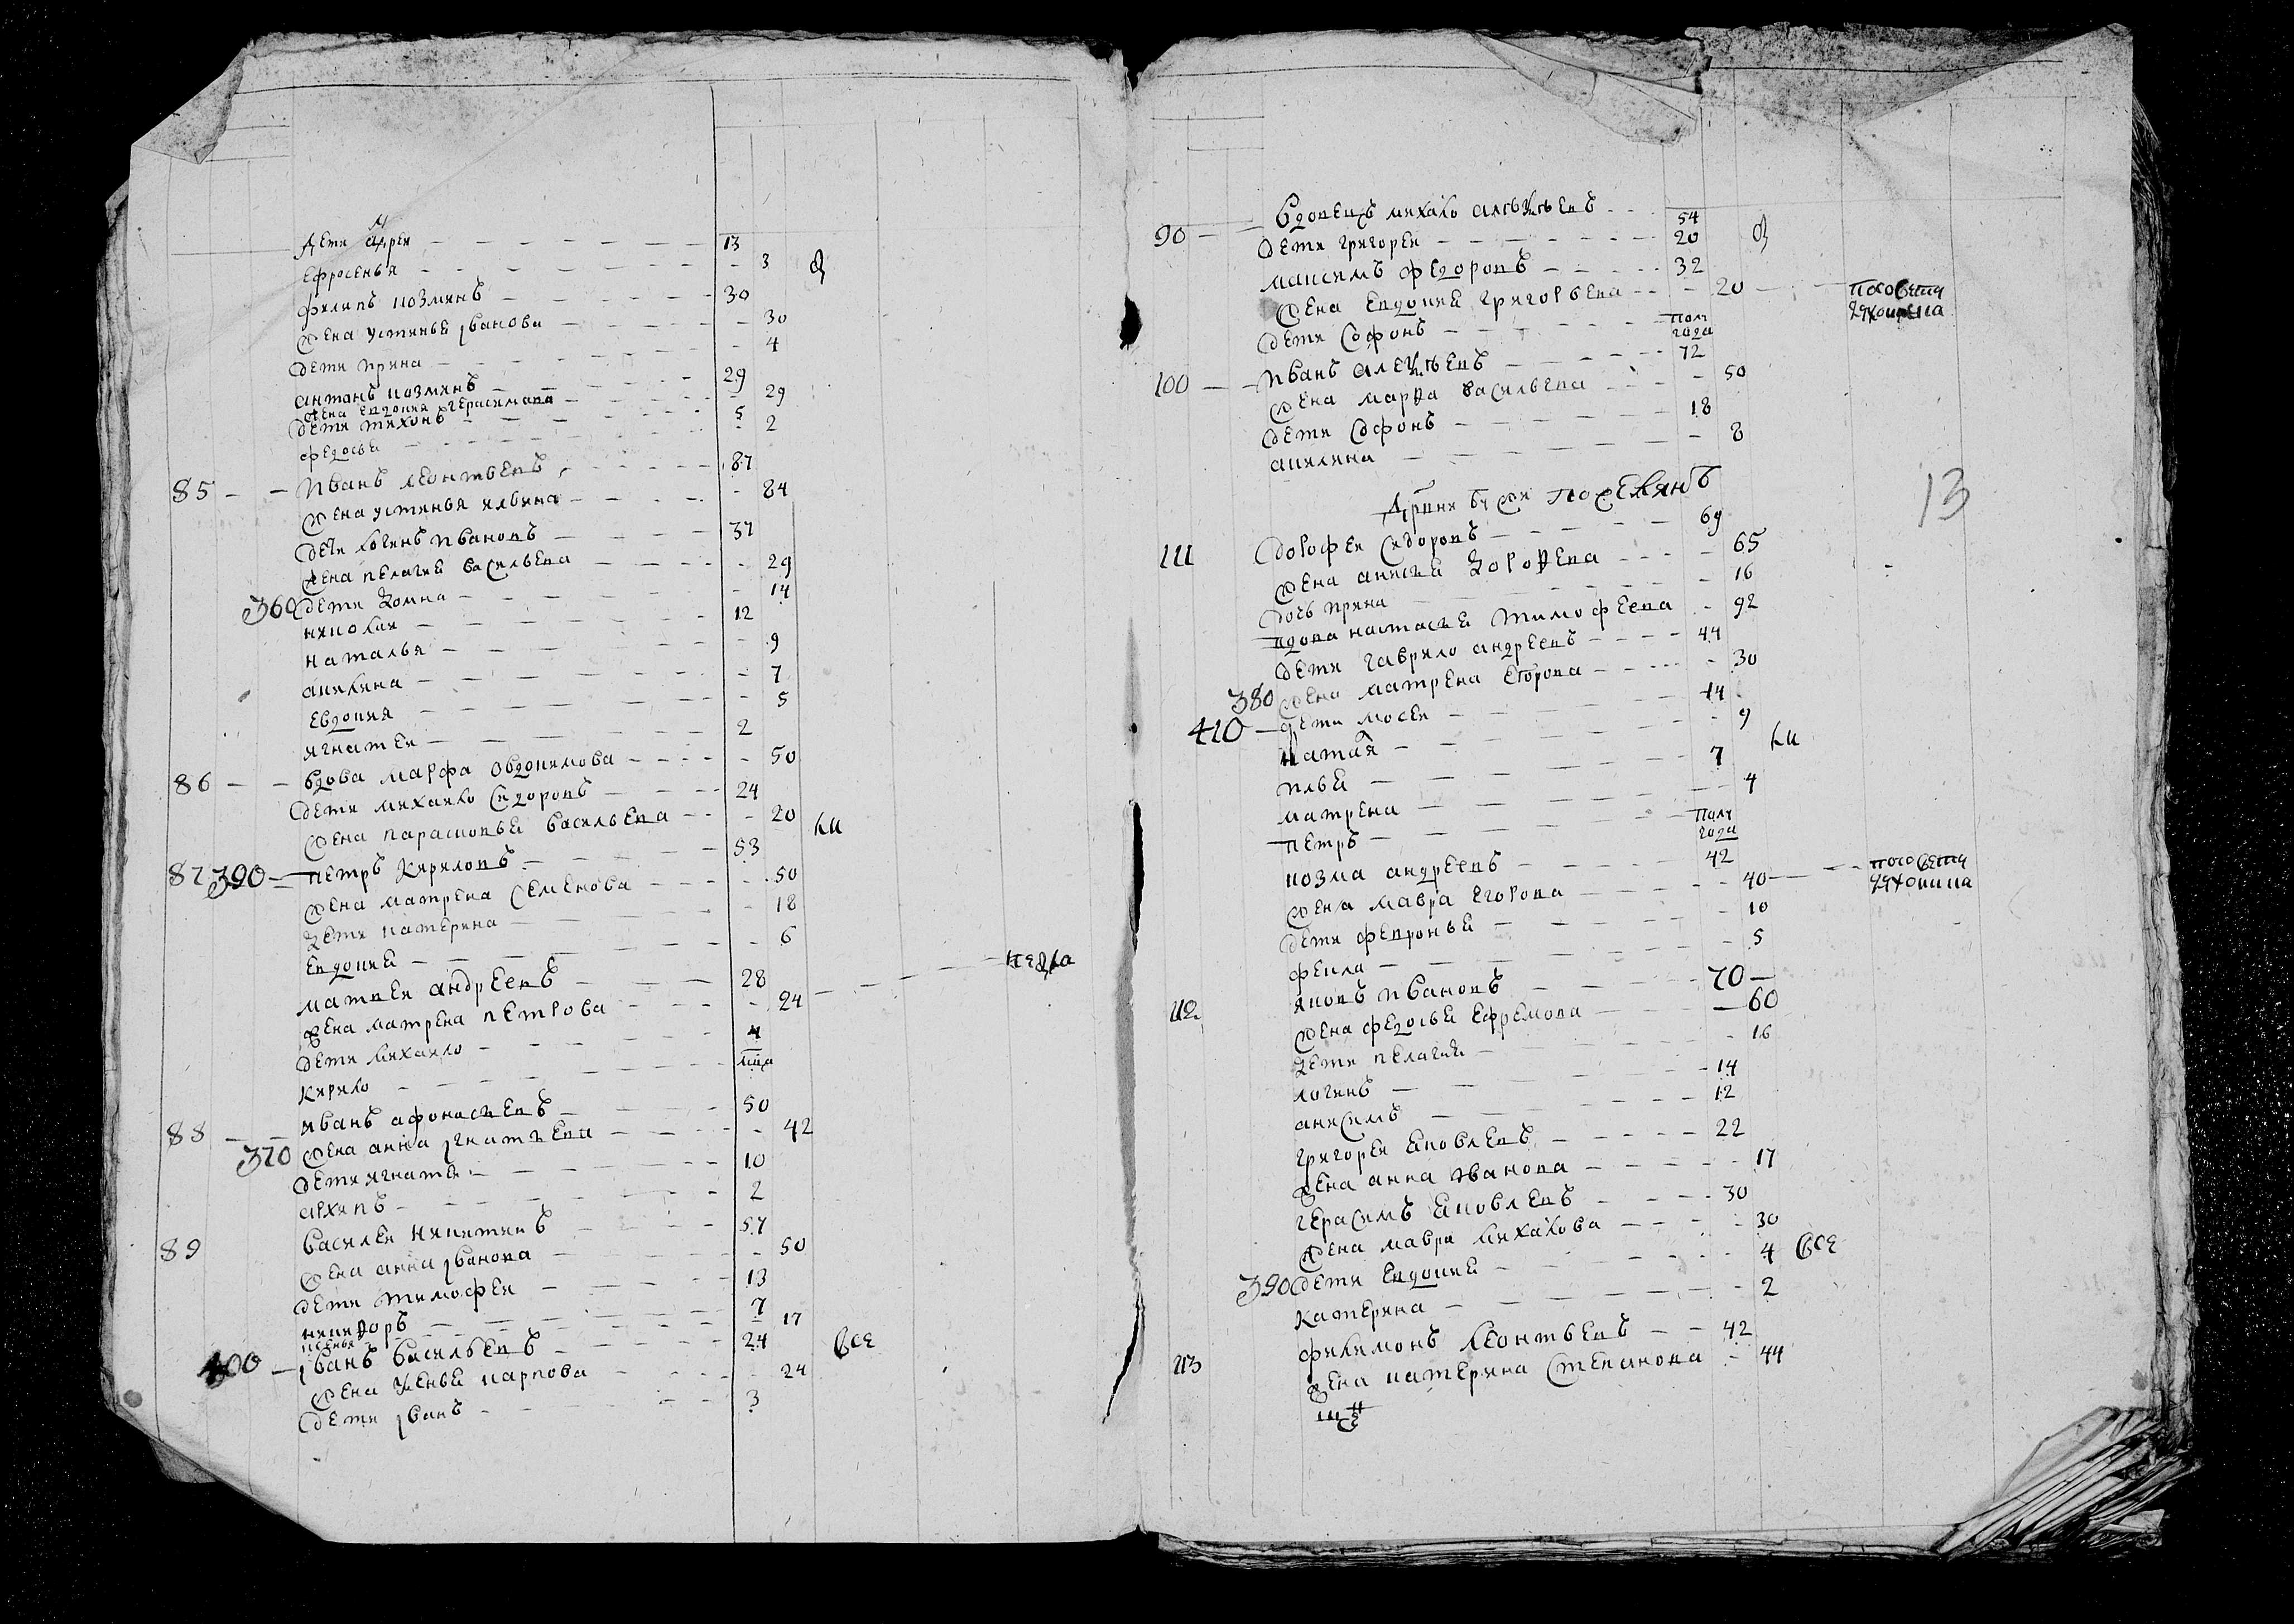 Дети Андреи 13
Ефросенья 3
Филипъ козминъ 30
Жена устинья иванова 30
дети ирина 4
антонъ козминъ 29
Жена евдокия герасимова 29
дети тихонъ 5
федосья 2
85 иванъ леонтьевъ 87
Жена устинья ильина 84
дети логинъ ивановъ 37
Жена пелагия васильева 29
360 дети домна 14
николаи 12
наталья 9
акилина 7
Евдокия 5
игнатеи 2
86 вдова марфа овдокимова 50
дети михаило сидоровъ 24
Жена парасковья васильева 20
87 390 петръ кириловъ 53
Жена матрена семенова 50
дети катерина 18
Евдокия 6
матвеи андреевъ 28
Жена матрена петрова 24
дети михаило 4
кирило
88 иванъ афонасьевъ 50
370 Жена анна игнатьева 42
дети игнатеи 10
архипъ 2
89 василеи никитинъ 57
Жена анна иванова 50
дети тимофеи 13
никифоръ 7
17
400 иванъ васильевъ 24 все
Жена аксенья карпова 24
дети иванъ 3
90 вдовецъ михаило алексеевъ 54
дети григореи 20
максимъ федоровъ 32
Жена евдокия григорьева 20
дети софонъ пол года
100 иванъ алексеевъ 72
Жена марфа васильева 50
дети софонъ 18
акилина 8
13
111 дорофеи сидоровъ 69
Жена анисья 65
дочь ирина 16
вдова настасья тимофеева 92
дети гаврило андреевъ 44
380 Жена матрена егорова 30
410 дети мосеи 14
9
илья 7
матрена 4
петръ пол года
козма андреевъ 42
Жена мавра егорова 40
дети февронья 10
фекла 5
112 яковъ ивановъ 70
Жена федосья ефремова 60
дети пелагия 16
логинъ 14
анисимъ 12
григореи яковлевъ 22
Жена анна иванова 17
герасимъ яковлевъ 30
Жена мавра михаилова 30
390 дети евдокия 4 все
катерина 2
113 филимонъ леонтьевъ 42
Жена катерина степанова 44